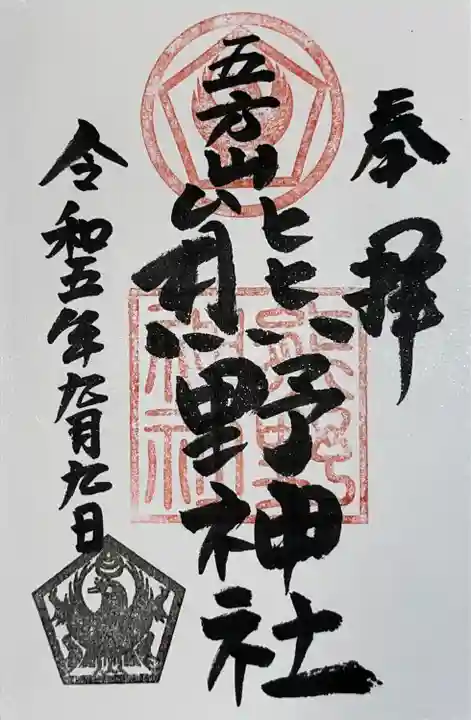 奉拝
五方山熊野神社
熊野神社
令和五年九月九日